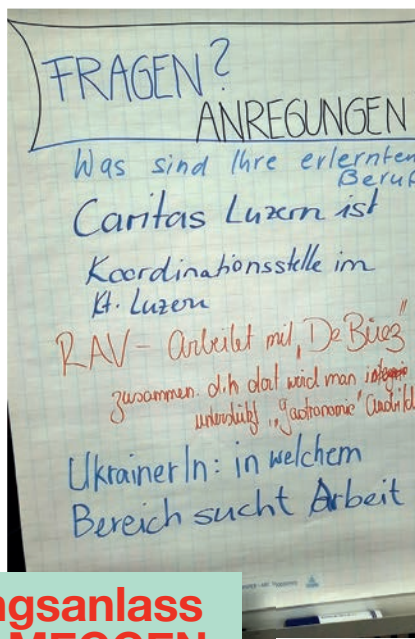 FRAGEN?
ANREGUNGEN
Was sind Ihre erlernten
Beruf
Caritas Luzern ist
Koordinationsstelle im
Kt. Luzern
RAV - Arbeitet mit „De Büez"
zusammen. d.h dort wird man
unterstützt „Gastronomie" Ausbild
UkrainerIn: in welchem
Bereich sucht Arbeit
ngsanlass
MEGGEN